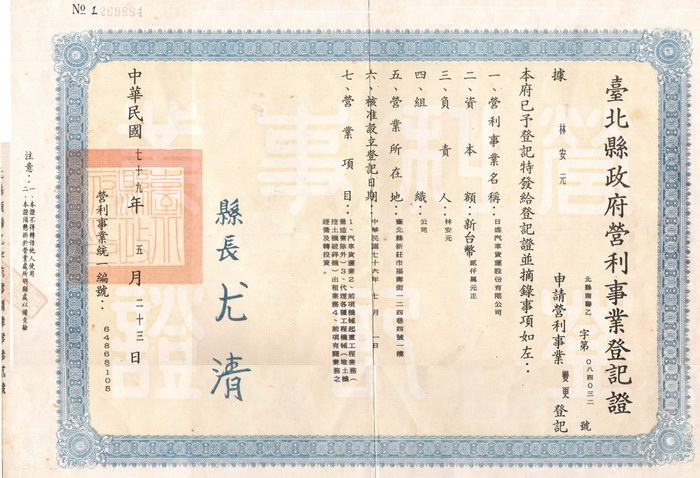 № 1269884
臺北縣政府營利事業登記證
北縣商聯乙 字第 〇八四〇三二 號
據 林安元 申請營利事業 變更 登記
本府已予登記特發給登記證並摘錄事項如左：
一、營利事業名稱：日盛汽車貨運股份有限公司
二、資本額：新台幣 貳仟萬元正
三、負責人：林安元
四、組織：公司
五、營業所在地：臺北縣新莊市福壽街一二四巷四號一樓
六、核准設立登記日期：中華民國七十六年 七月 一日
七、營業項目：1、汽車貨運業2、前項機械起重工程業務（
營造業除外）3、代理各種工程機械（堆土機
挖土機破碎機）出租業務4、前項有關業務之
經營及轉投資。
縣長 尤清
中華民國 七十九 年 五 月 二十三 日
營利事業統一編號：64868105
注意：一、本證不得轉借他人使用
二、本證須懸掛於營業處所明顯處以備查驗